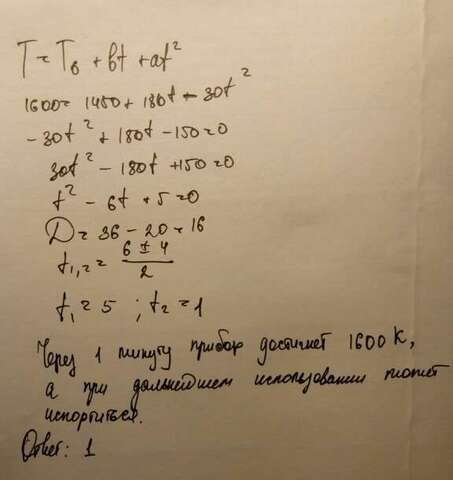 T = T₀ + bt + at²
1600 = 1450 + 180t - 30t²
-30t² + 180t - 150 = 0
30t² - 180t + 150 = 0
t² - 6t + 5 = 0
D = 36 - 20 = 16
t₁,₂ = (6 ± 4)/2
t₁ = 5 ; t₂ = 1
Через 1 минуту прибор достигнет 1600 К,
а при дальнейшем использовании может
испортиться.
Ответ: 1